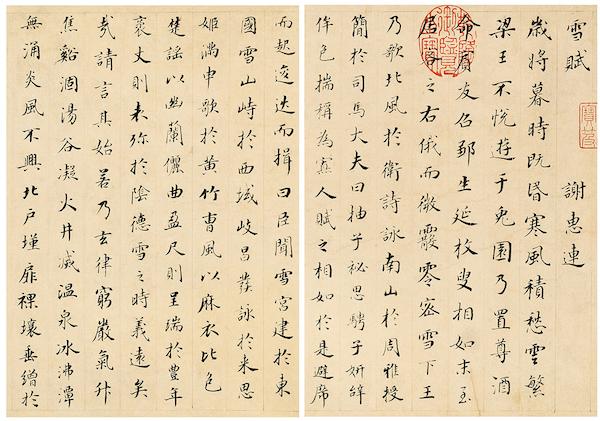 雪賦 謝惠連
歲將暮時既昏寒風積愁雲繁
梁王不悅遊于兔園乃置尊酒
命賓友召鄒生延枚叟相如末至
居客之右俄而微霰零密雪下王
乃歌北風於衛詩詠南山於周雅授
簡於司馬大夫曰抽子祕思騁子妍辭
侔色揣稱為寡人賦之相如於是避席
而起逡巡而揖曰臣聞雪宮建於東
國雪山峙於西域岐昌發詠於来思
姬滿申歌於黃竹曹風以麻衣比色
楚謠以幽蘭儷曲盈尺則呈瑞於豐年
袤丈則表沴於陰德雪之時義遠矣
哉請言其始若乃玄律窮嚴氣升
焦谿涸湯谷凝火井滅温泉冰沸潭
無涌炎風不興北戶墐扉裸壤垂繒於